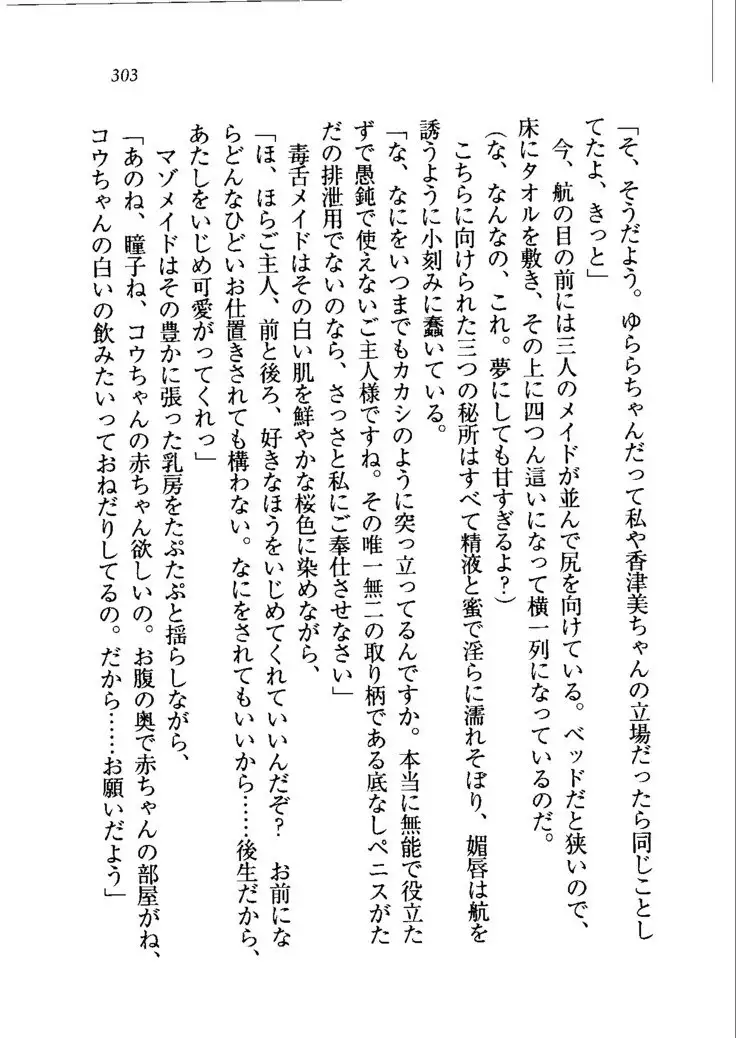 303
「そ、そうだよう。ゆららちゃんだって私や香津美ちゃんの立場だったら同じことし
てたよ、きっと」
今、航の目の前には三人のメイドが並んで尻を向けている。ベッドだと狭いので、
床にタオルを敷き、その上に四つん這いになって横一列になっているのだ。
(な、なんなの、これ。夢にしても甘すぎるよ?)
こちらに向けられた三つの秘所はすべて精液と蜜で淫らに濡れそぼり、媚唇は航を
誘うように小刻みに蠢いている。
「な、なにをいつまでもカカシのように突っ立ってるんですか。本当に無能で役立た
ずで愚鈍で使えないご主人様ですね。その唯一無二の取り柄である底なしペニスがた
だの排泄用でないのなら、さっさと私にご奉仕させなさい」
毒舌メイドはその白い肌を鮮やかな桜色に染めながら、
「ほ、ほらご主人、前と後ろ、好きなほうをいじめてくれていいんだぞ? お前にな
らどんなひどいお仕置きされても構わない。なにをされてもいいから……後生だから、
あたしをいじめ可愛がってくれっ」
マゾメイドはその豊かに張った乳房をたぷたぷと揺らしながら、
「あのね、瞳子ね、コウちゃんの赤ちゃん欲しいの。お腹の奥で赤ちゃんの部屋がね、
コウちゃんの白いの飲みたいっておねだりしてるの。だから……お願いだよう」